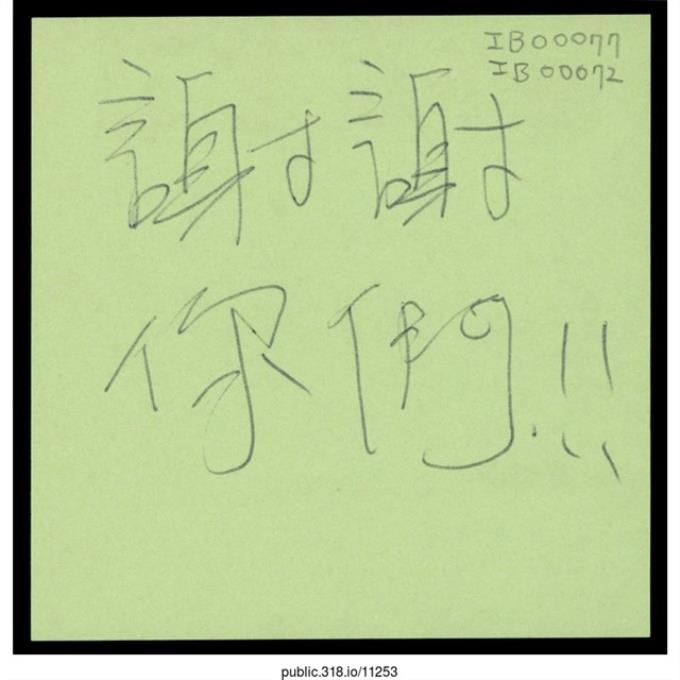 IB00077
IB00072
謝謝
你們!!
public.318.io/11253